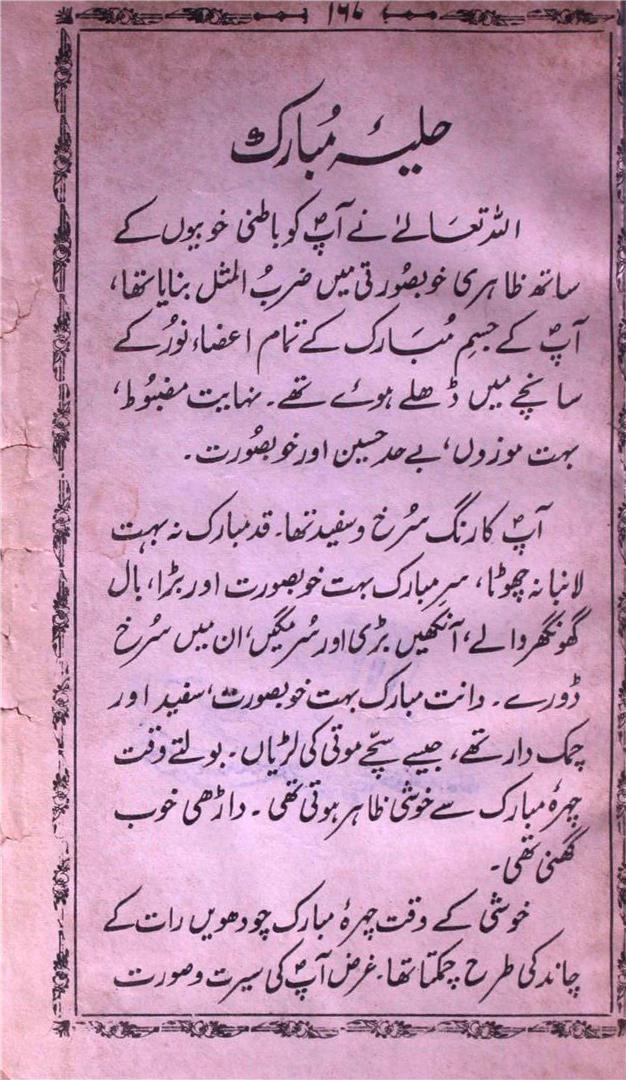 ۱۶۸
حلیۂ مُبارک
اللہ تعَالےٰ نے آپؐ کو باطنی خوبیوں کے
ساتھ ظاہری خوبصُورتی میں ضربُ المثل بنایا تھا،
آپؐ کے جسمِ مُبَارک کے تمام اعضاء نورُ کے
سانچے میں ڈھلے ہوئے تھے۔ نہایت مضبُوط،
بہت موزوں، بے حد حسین اور خوبصُورت۔
آپؐ کا رنگ سُرخ و سفید تھا۔ قد مبارک نہ بہت
لانبا نہ چھوٹا، سرِ مبارک بہت خوبصورت اور بڑا، بال
گھونگھر والے، آنکھیں بڑی اور سُرمگیں، ان میں سُرخ
ڈورے۔ دانت مبارک بہت خوبصورت، سفید اور
چمک دار تھے، جیسے سچّے موتی کی لڑیاں۔ بولتے وقت
چہرۂ مبارک سے خوشی ظاہر ہوتی تھی۔ داڑھی خوب
گھنی تھی۔
خوشی کے وقت چہرۂ مبارک چودھویں رات کے
چاند کی طرح چمکتا تھا۔ غرض آپؐ کی سیرت و صورت